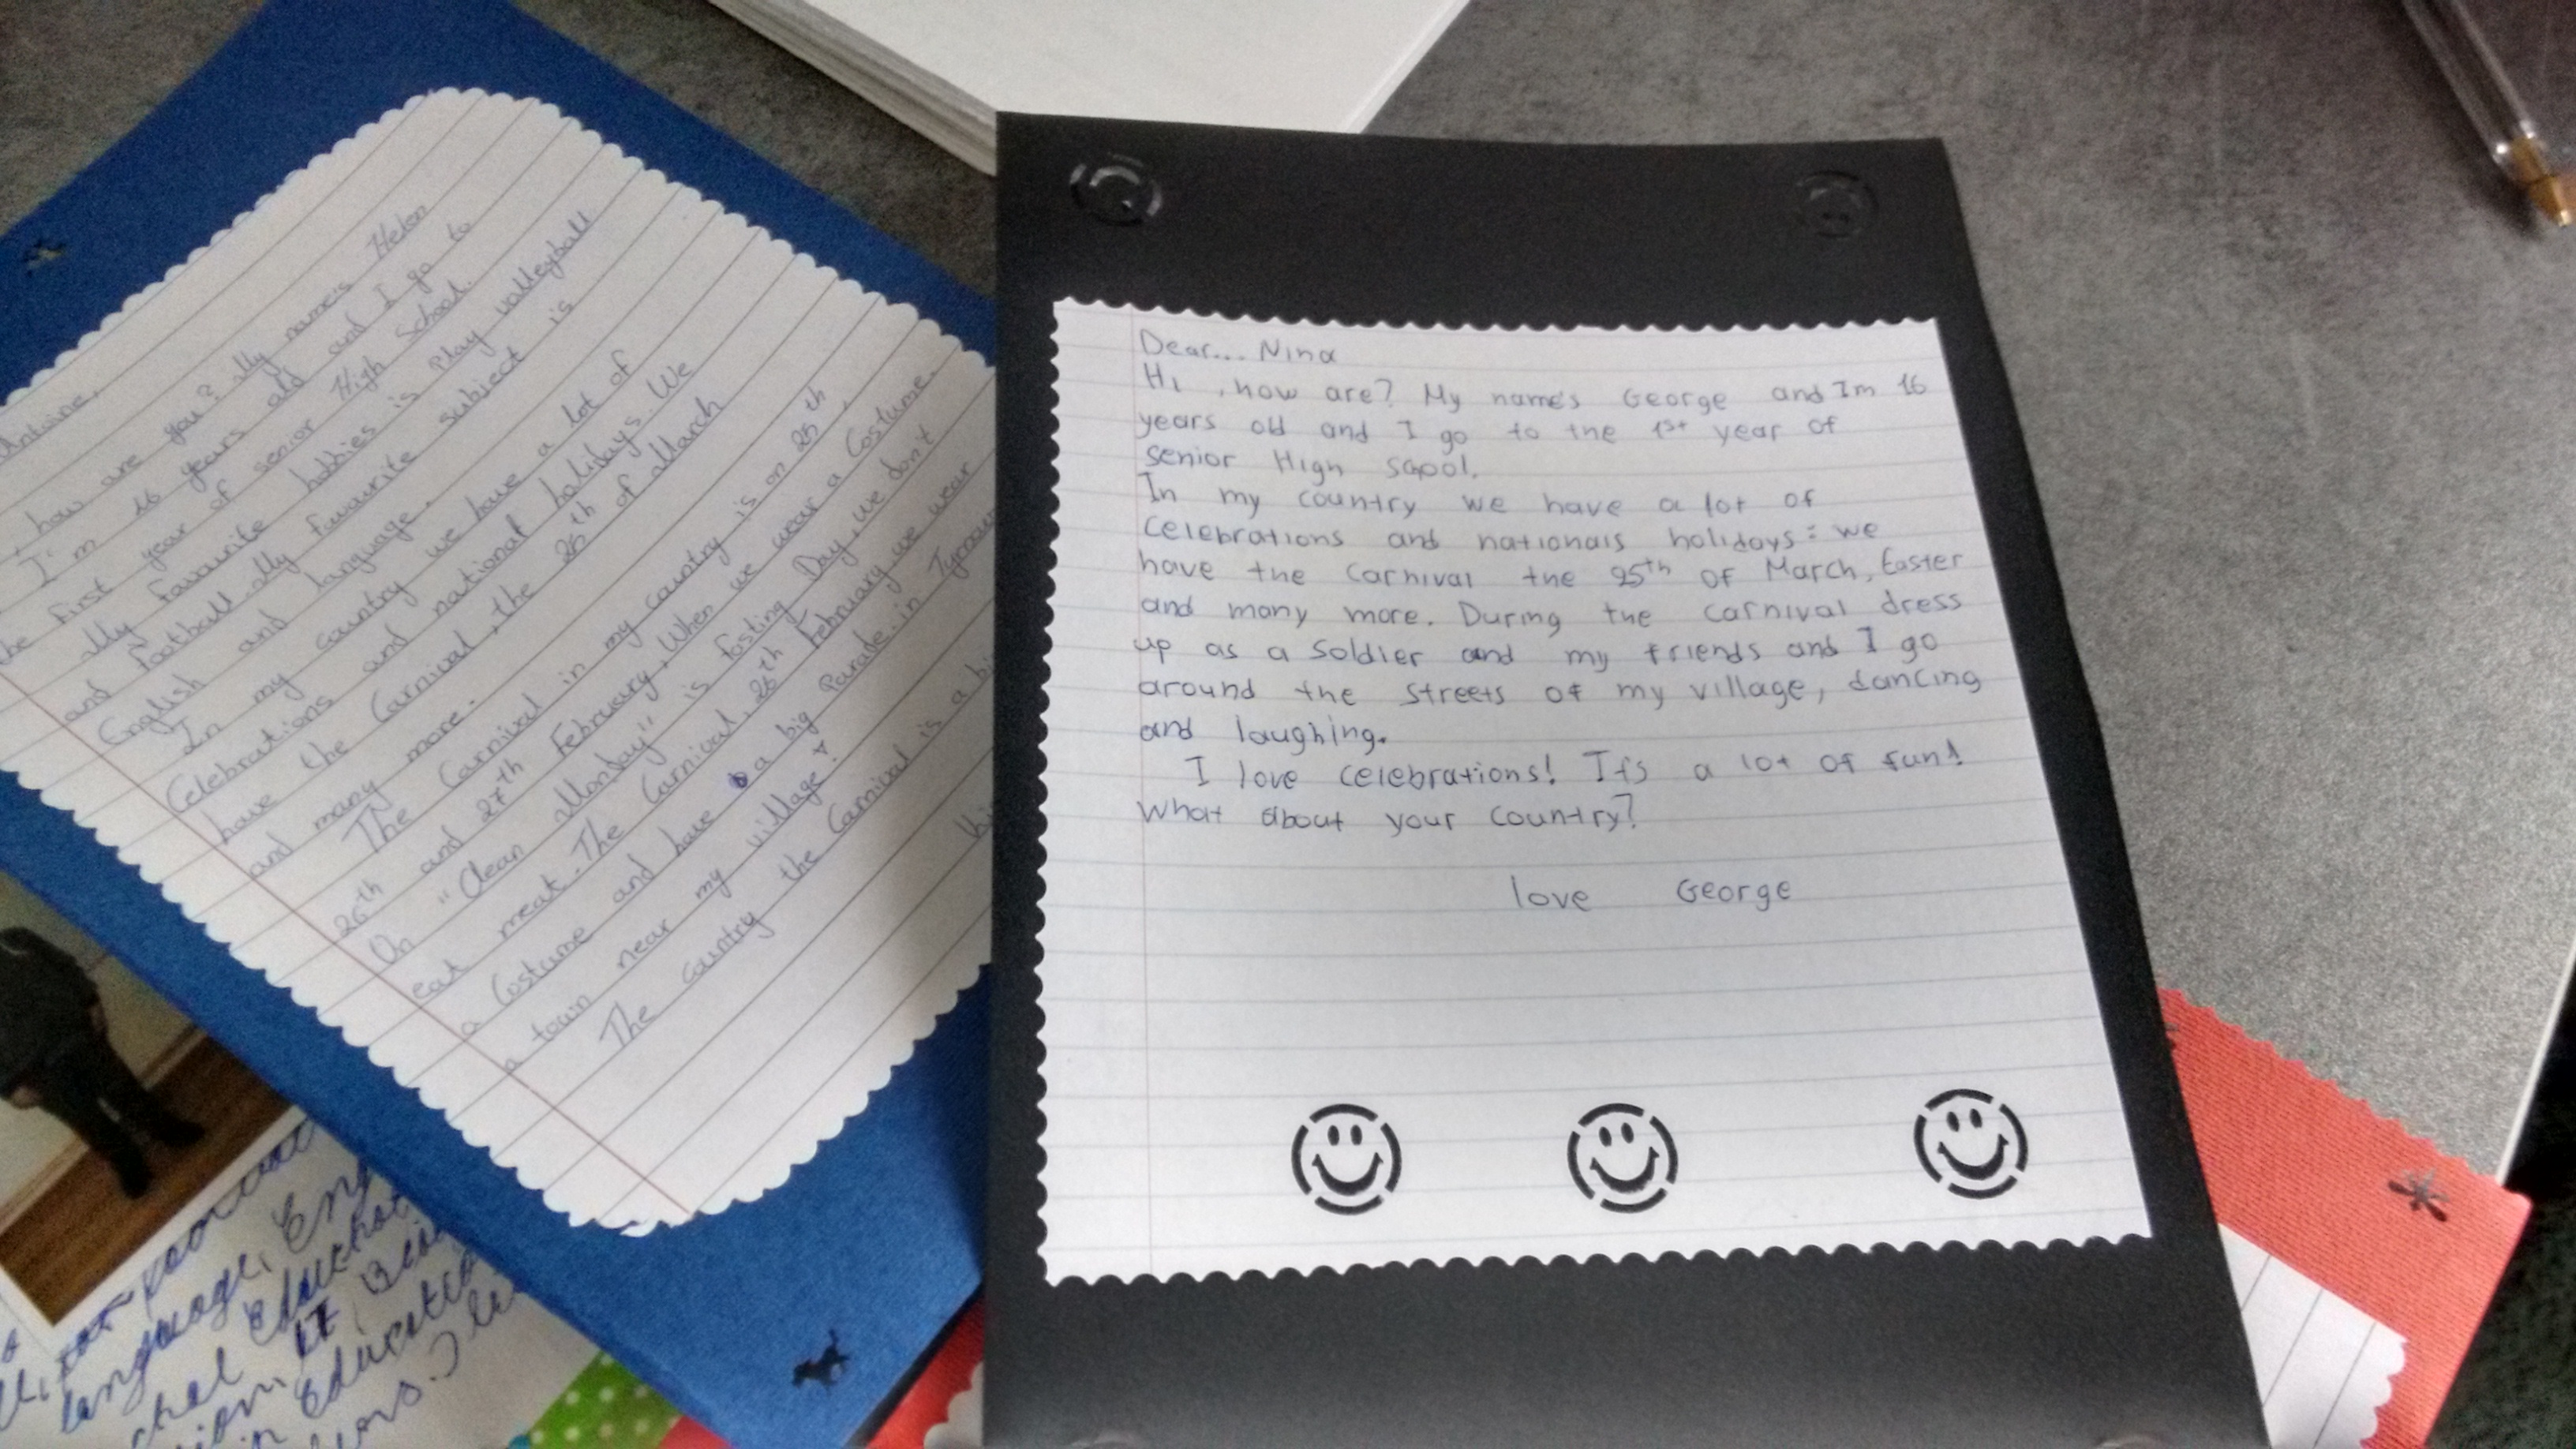 Antoine,
, how are you? My name's Helen
I'm 16 years old and I go to
the first year of senior High School.
My favourite hobbies is play volleyball
and football. My favourite subject is
English and language.
In my country we have a lot of
Celebrations and national holidays. We
have the Carnival, the 25th of March
and many more.
The Carnival in my country is on 25th,
26th and 27th February, When we wear a Costume.
On "Clean Monday" is fasting Day, we don't
eat meat. The Carnival, 26th February, we wear
a Costume and have a big Parade in
a town near my village.
The country the Carnival is a
Dear... Nina
Hi, how are? My name's George and Im 16
years old and I go to the 1st year of
senior High scool.
In my country we have a lot of
celebrations and nationals holidays: we
have the carnival the 25th of March, Easter
and many more. During the carnival dress
up as a Soldier and my friends and I go
around the streets of my village, dancing
and laughing.
I love celebrations! It's a lot of fun!
What about your country?
love George
language,
IT,
Education